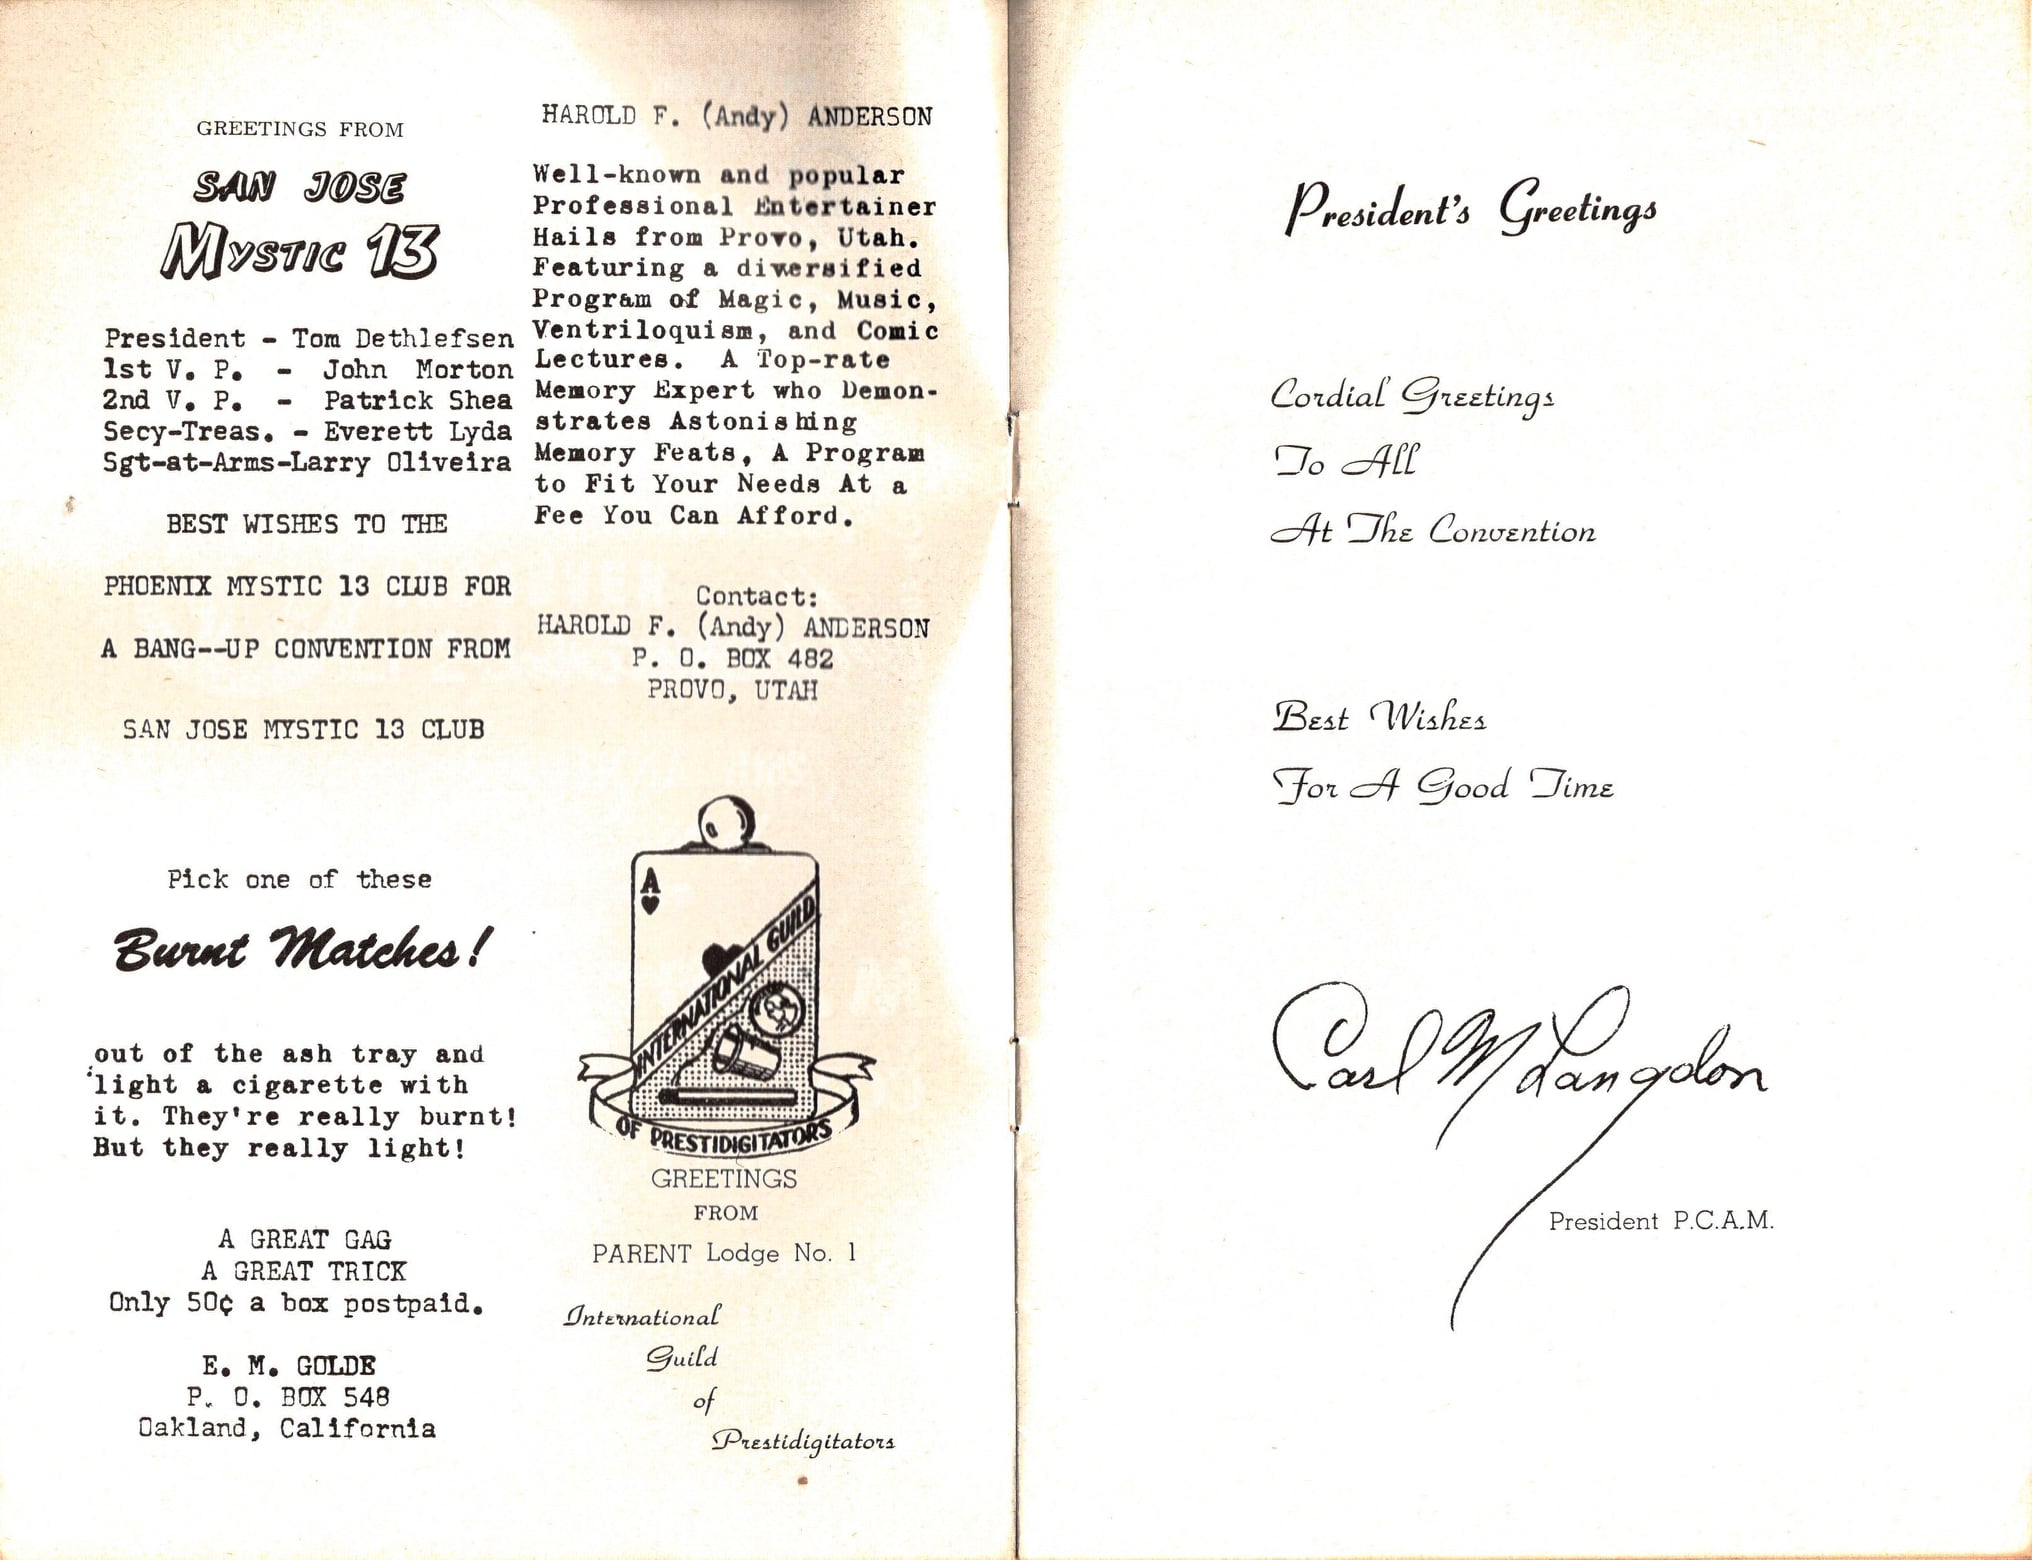 GREETINGS FROM
SAN JOSE
MYSTIC 13
President - Tom Dethlefsen
1st V. P. - John Morton
2nd V. P. - Patrick Shea
Secy-Treas. - Everett Lyda
Sgt-at-Arms-Larry Oliveira
BEST WISHES TO THE
PHOENIX MYSTIC 13 CLUB FOR
A BANG--UP CONVENTION FROM
SAN JOSE MYSTIC 13 CLUB
Pick one of these
Burnt Matches!
out of the ash tray and
light a cigarette with
it. They're really burnt!
But they really light!
A GREAT GAG
A GREAT TRICK
Only 50¢ a box postpaid.
E. M. GOLDE
P. O. BOX 548
Oakland, California
HAROLD F. (Andy) ANDERSON
Well-known and popular
Professional Entertainer
Hails from Provo, Utah.
Featuring a diversified
Program of Magic, Music,
Ventriloquism, and Comic
Lectures. A Top-rate
Memory Expert who Demon-
strates Astonishing
Memory Feats, A Program
to Fit Your Needs At a
Fee You Can Afford.
Contact:
HAROLD F. (Andy) ANDERSON
P. O. BOX 482
PROVO, UTAH
A
INTERNATIONAL GUILD
OF PRESTIDIGITATORS
GREETINGS
FROM
PARENT Lodge No. 1
International
Guild
of
Prestidigitators
President's Greetings
Cordial Greetings
To All
At The Convention
Best Wishes
For A Good Time
Carl M Langdon
President P.C.A.M.